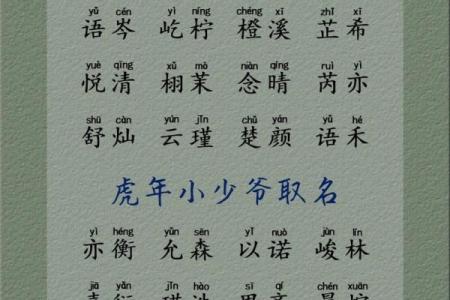 yǔ cén yì níng chéng xī zhǐ xī
语岑 屹柠 橙溪 芷希
yuè qīng xǔ mò niàn qíng ruì yì
悦清 栩茉 念晴 芮亦
shū càn yún jǐn chǔ yán yǔ hé
舒灿 云瑾 楚颜 语禾
虎年小少爷取名
yì héng yǔn sēn yǐ nuò jùn lín
亦衡 允森 以诺 峻林
jiā yǎn jǐn hào sī qí chén xuān